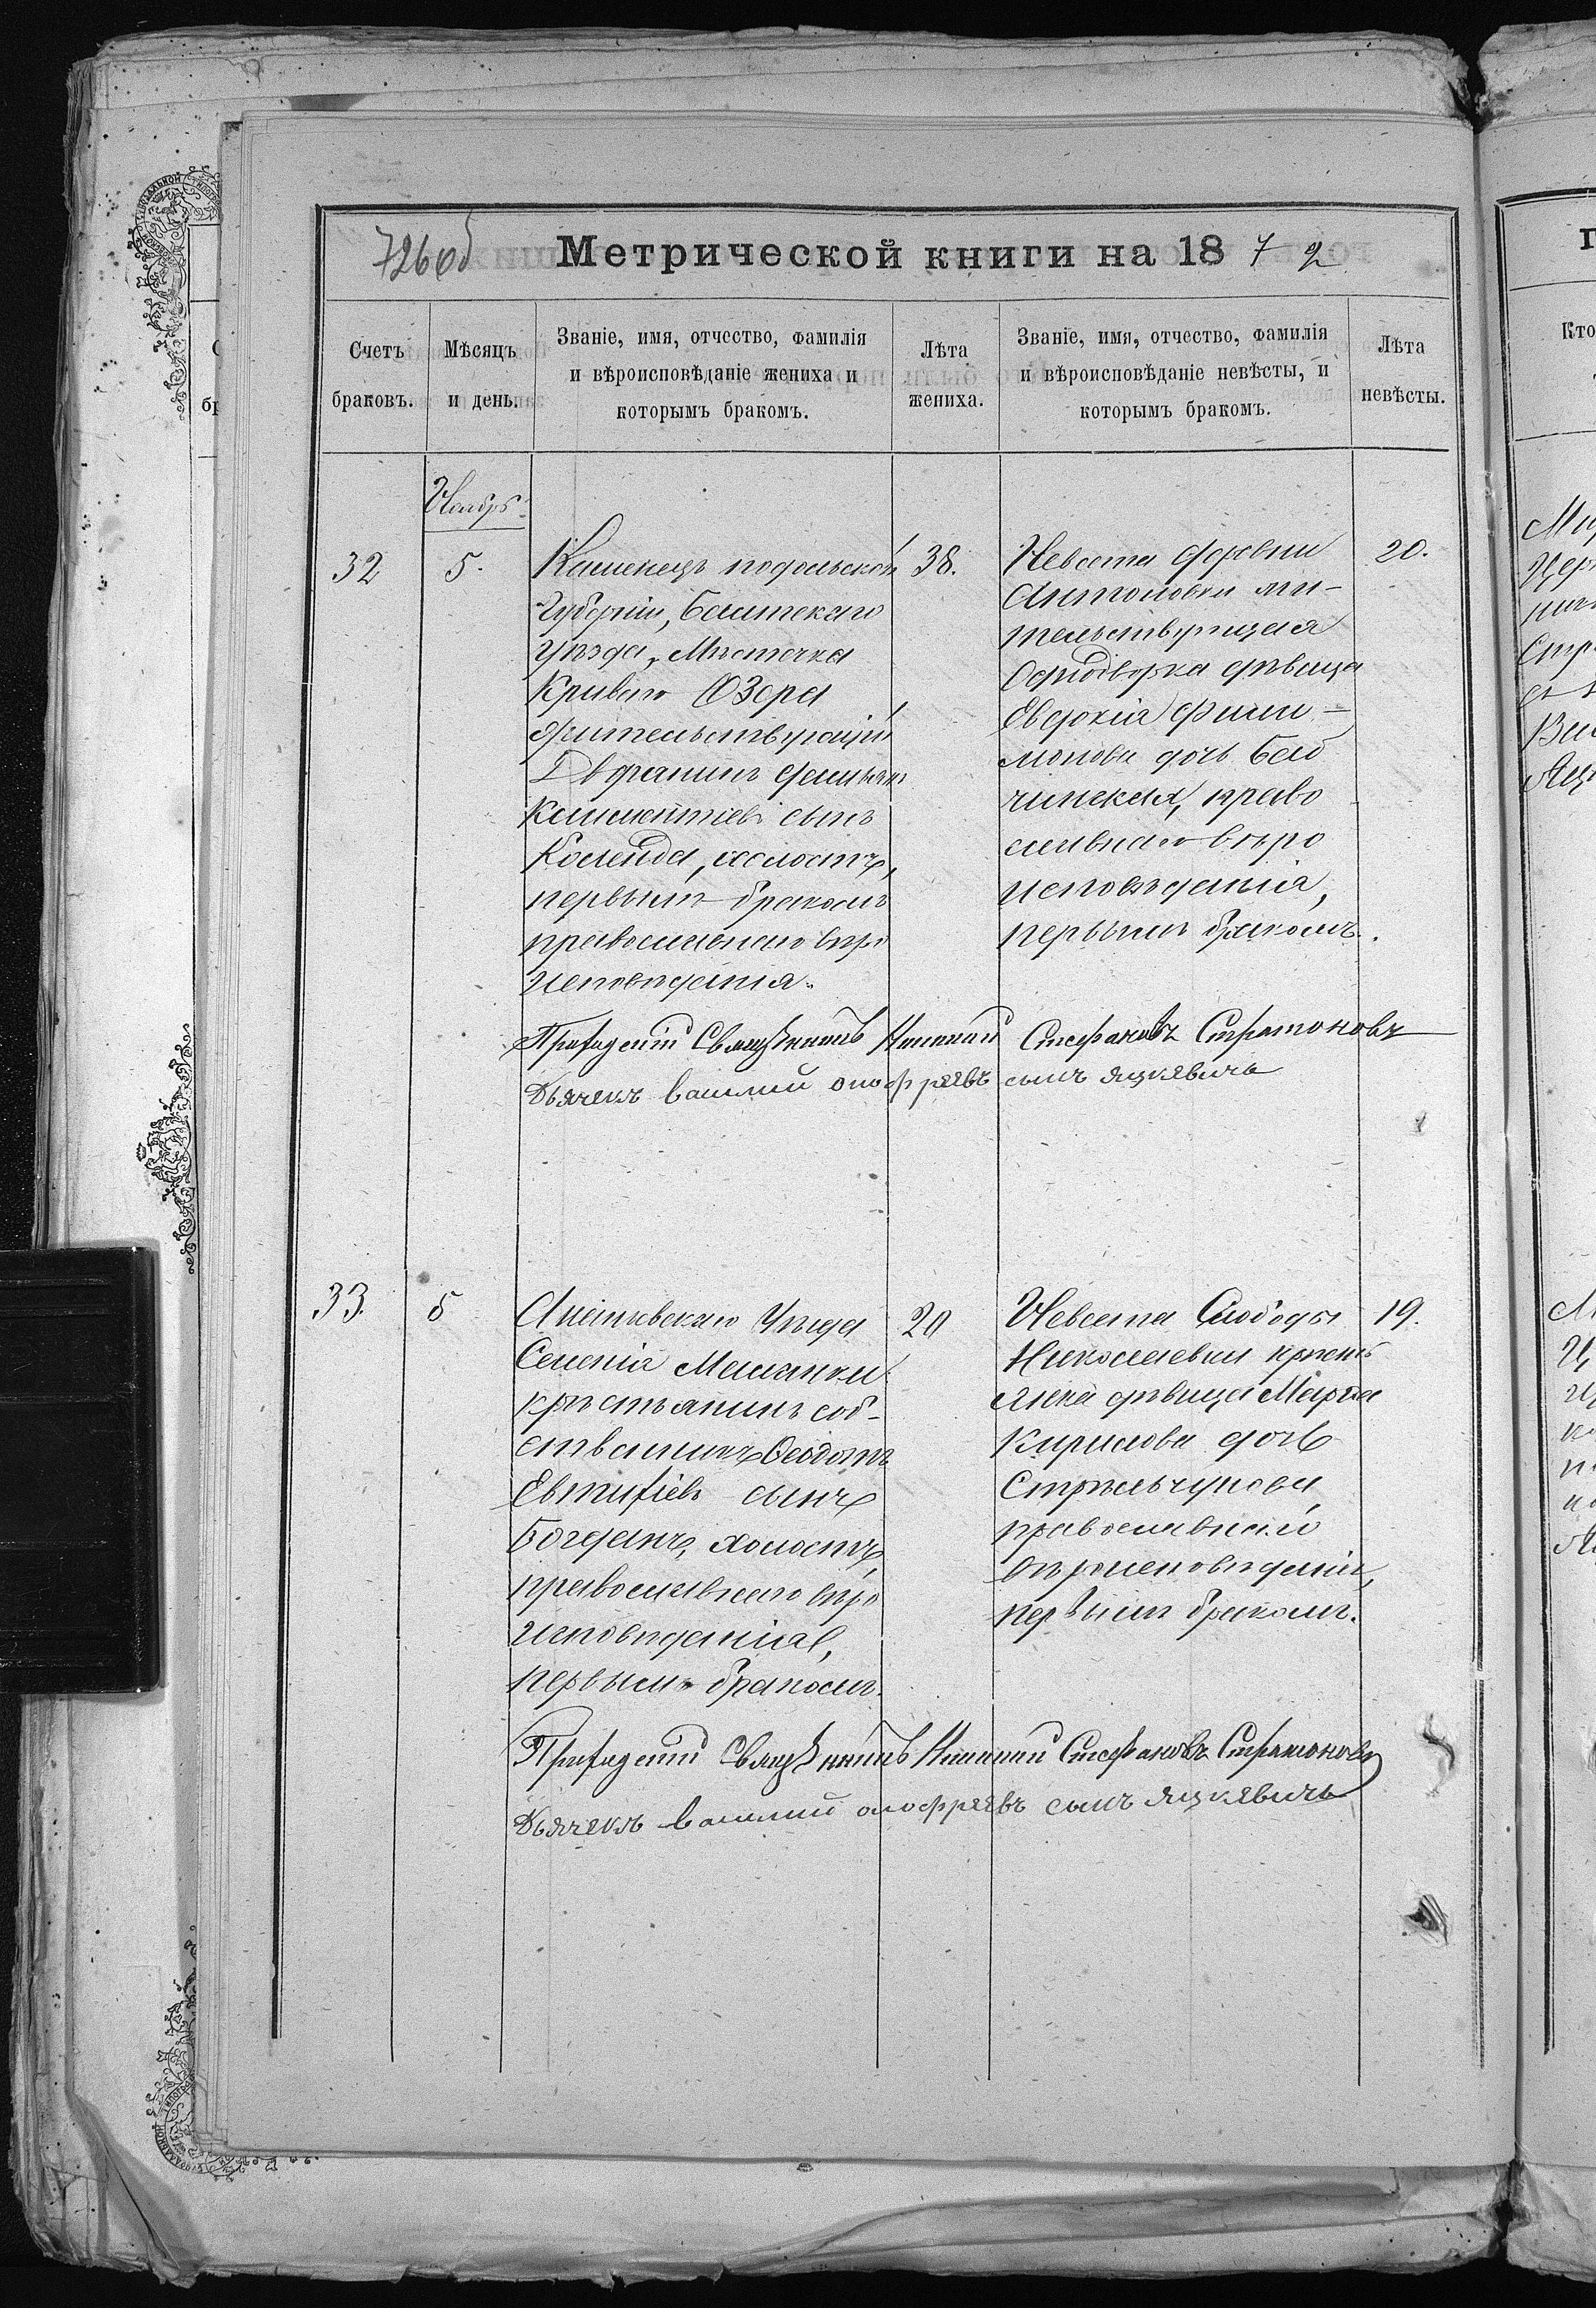 726об
Метрической книги на 1872
Счетъ браковъ.
Мѣсяцъ и день.
Званіе, имя, отчество, фамилія
и вѣроисповѣданіе жениха и
которымъ бракомъ.
Лѣта жениха.
Званіе, имя, отчество, фамилія
и вѣроисповѣданіе невѣсты, и
которымъ бракомъ.
Лѣта невѣсты.
Ноябрь
32
5.
Каменецъ подольской
Губерніи, Балтскаго
Уѣзда, Мѣстечка
Криваго Озера
жительствующій
Дворянинъ Демьянъ
Климентіевъ сынъ
Коленда, холостъ,
первымъ бракомъ
православнаго вѣро
исповѣданія.
38.
Невеста деревни
Антоновки жи-
тельствующая
Однодворка дѣвица
Евдокія Фили-
монова дочь Баб
чинская, право
славнаго вѣро
исповѣданія,
первымъ бракомъ.
20.
Священникъ Стефановъ Стратоновъ
Дьячекъ Василий онофрiевъ сынъ яцкевичь
33.
5
Ананьевскаго Уѣзда
Селенія
крѣстьянинъ соб-
ственникъ Ѳеодотъ
Евтихіевъ сынъ
Богданъ, холостъ,
православнаго вѣро
исповѣданія,
первымъ бракомъ.
20
Невеста Слободы
Николаевки крѣсть
янка дѣвица Марія
Кирилова дочь
Стрѣльчукова,
православнаго
вѣроисповѣданія,
первымъ бракомъ.
19.
Священникъ Стефановъ Стратоновъ
Дьячекъ Василий онофрiевъ сынъ яцкевичь
Кто